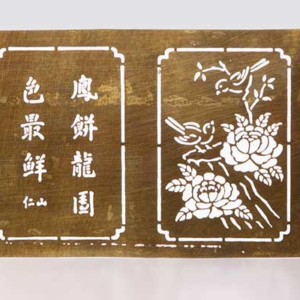 鳳餅龍團
色最鮮
仁山